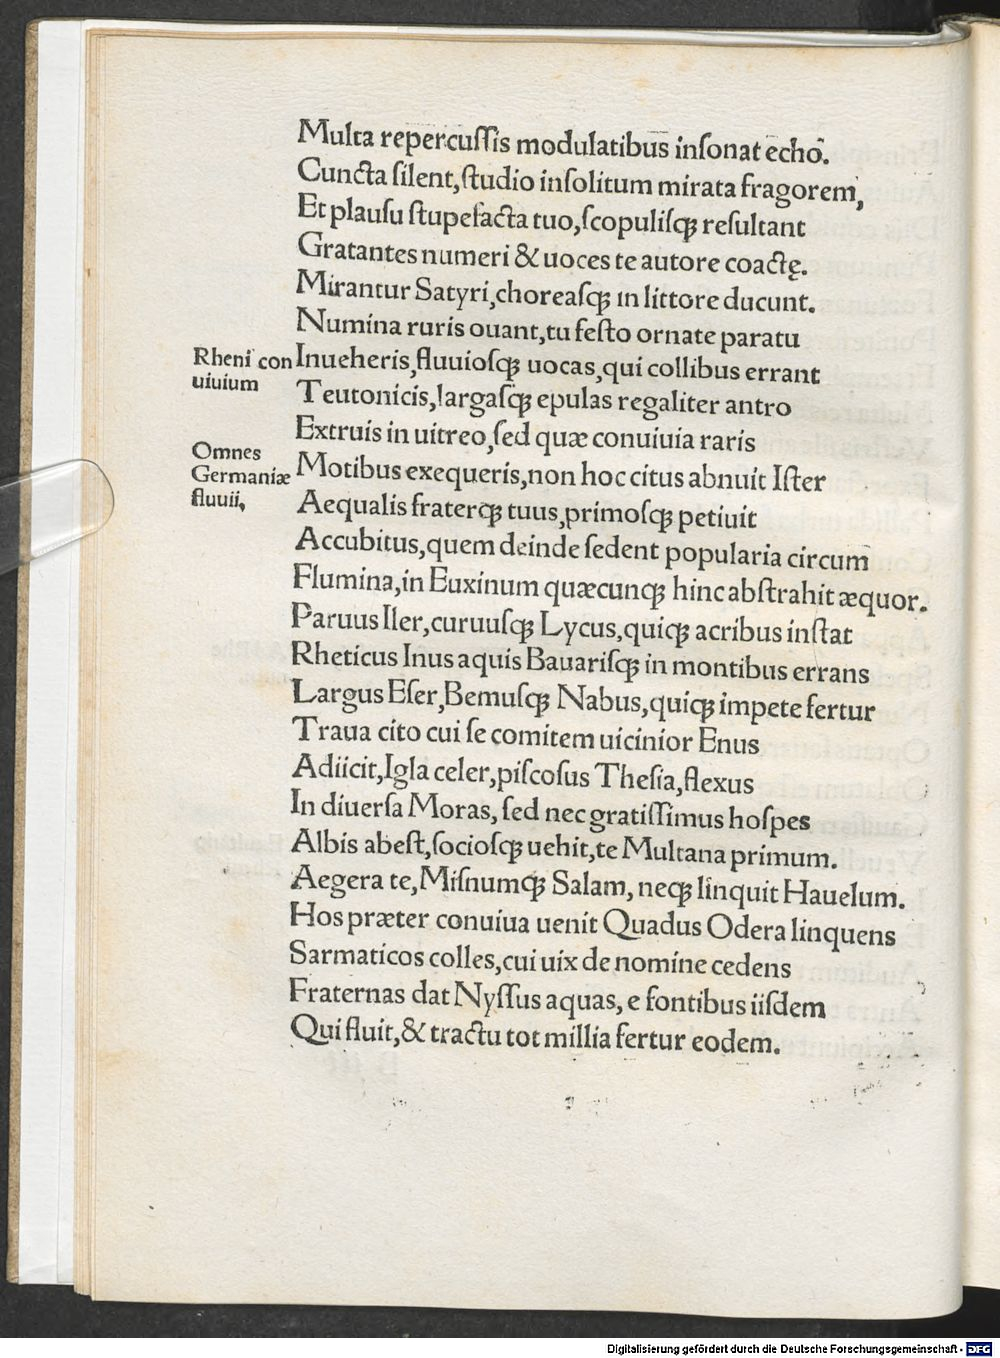 Multa repercuſſis modulatibus inſonat echo.
Cuncta ſilent, ſtudio inſolitum mirata fragorem,
Et plauſu ſtupefacta tuo, ſcopuliſqꝫ reſultant
Gratantes numeri & uoces te autore coactę.
Mirantur Satyri, choreaſqꝫ in littore ducunt.
Numina ruris ouant, tu feſto ornate paratu
Rheni con
uiuium
Inueheris, fluuioſqꝫ uocas, qui collibus errant
Teutonicis, largaſqꝫ epulas regaliter antro
Extruis in uitreo, ſed quæ conuiuia raris
Omnes
Germaniæ
fluuii,
Motibus exequeris, non hoc citus abnuit Iſter
Aequalis fraterqꝫ tuus, primoſqꝫ petiuit
Accubitus, quem deinde ſedent popularia circum
Flumina, in Euxinum quæcunqꝫ hinc abſtrahit æquor.
Paruus Iler, curuuſqꝫ Lycus, quiqꝫ acribus inſtat
Rheticus Inus aquis Bauariſqꝫ in montibus errans
Largus Eſer, Bemuſqꝫ Nabus, quiqꝫ impete fertur
Traua cito cui ſe comitem uicinior Enus
Adiicit, Igla celer, piſcoſus Theſia, flexus
In diuerſa Moras, ſed nec gratiſſimus hoſpes
Albis abeſt, ſocioſqꝫ uehit, te Multana primum.
Aegera te, Miſnumqꝫ Salam, neqꝫ linquit Hauelum.
Hos præter conuiua uenit Quadus Odera linquens
Sarmaticos colles, cui uix de nomine cedens
Fraternas dat Nyſſus aquas, e fontibus iiſdem
Qui fluit, & tractu tot millia fertur eodem.
Digitalisierung gefördert durch die Deutsche Forschungsgemeinschaft - DFG